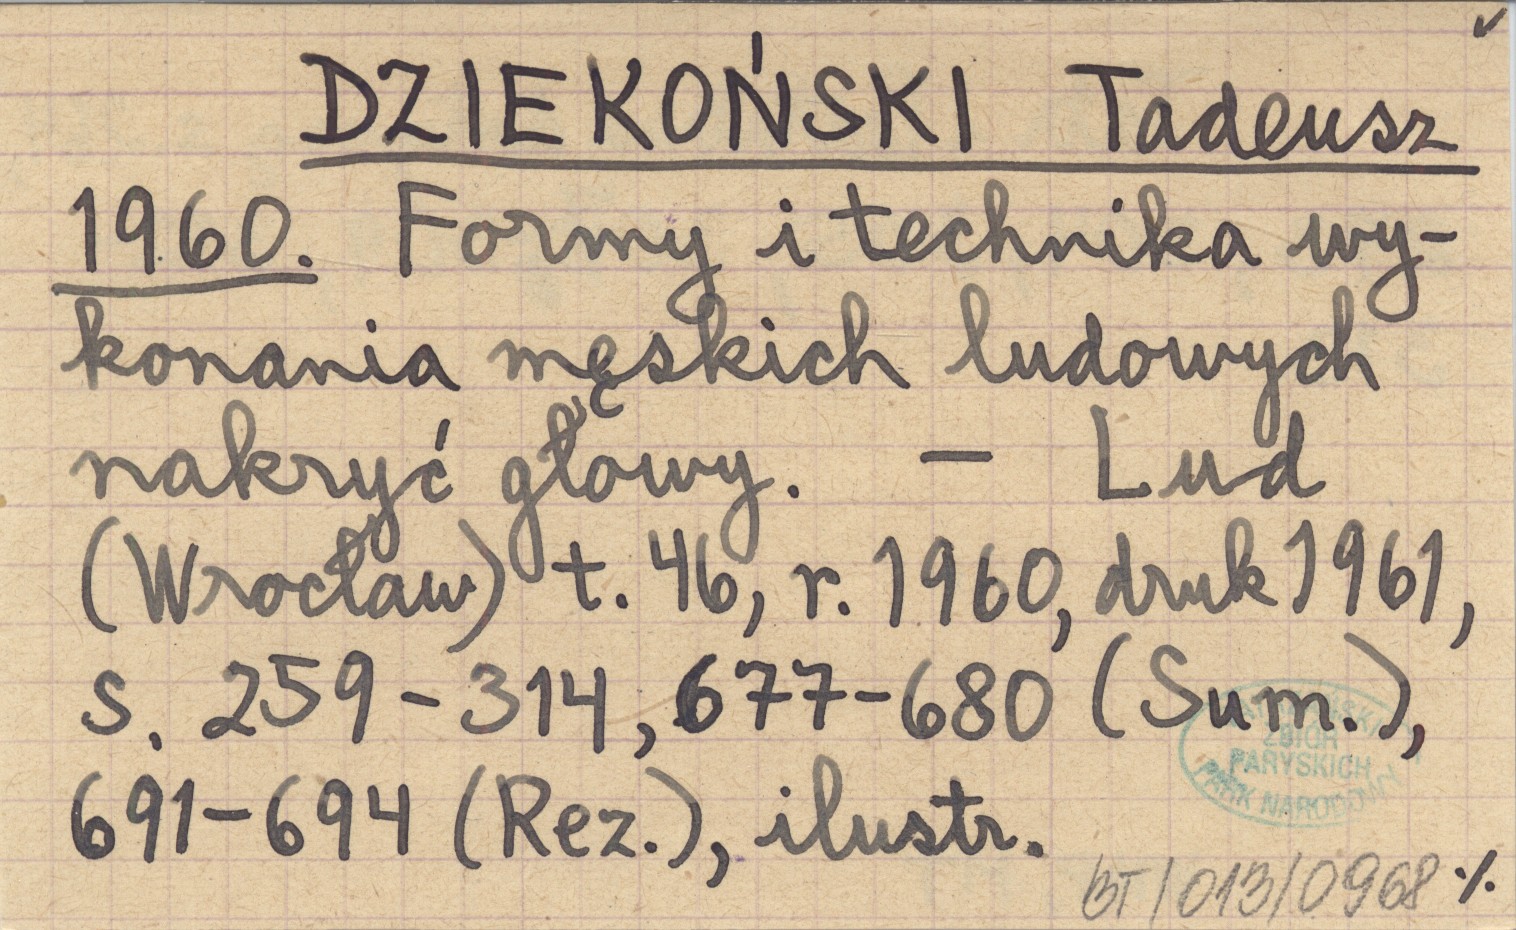 ✓
DZIEKOŃSKI Tadeusz
1960. Formy i technika wy-
konania męskich ludowych
nakryć głowy. — Lud
(Wrocław) t. 46, r. 1960, druk 1961,
s. 259-314, 677-680 (Sum.),
691-694 (Rez.), ilustr.
ZBIÓR
PARYSKICH
PARK NARODOWY
BT/013/0968 ·/.